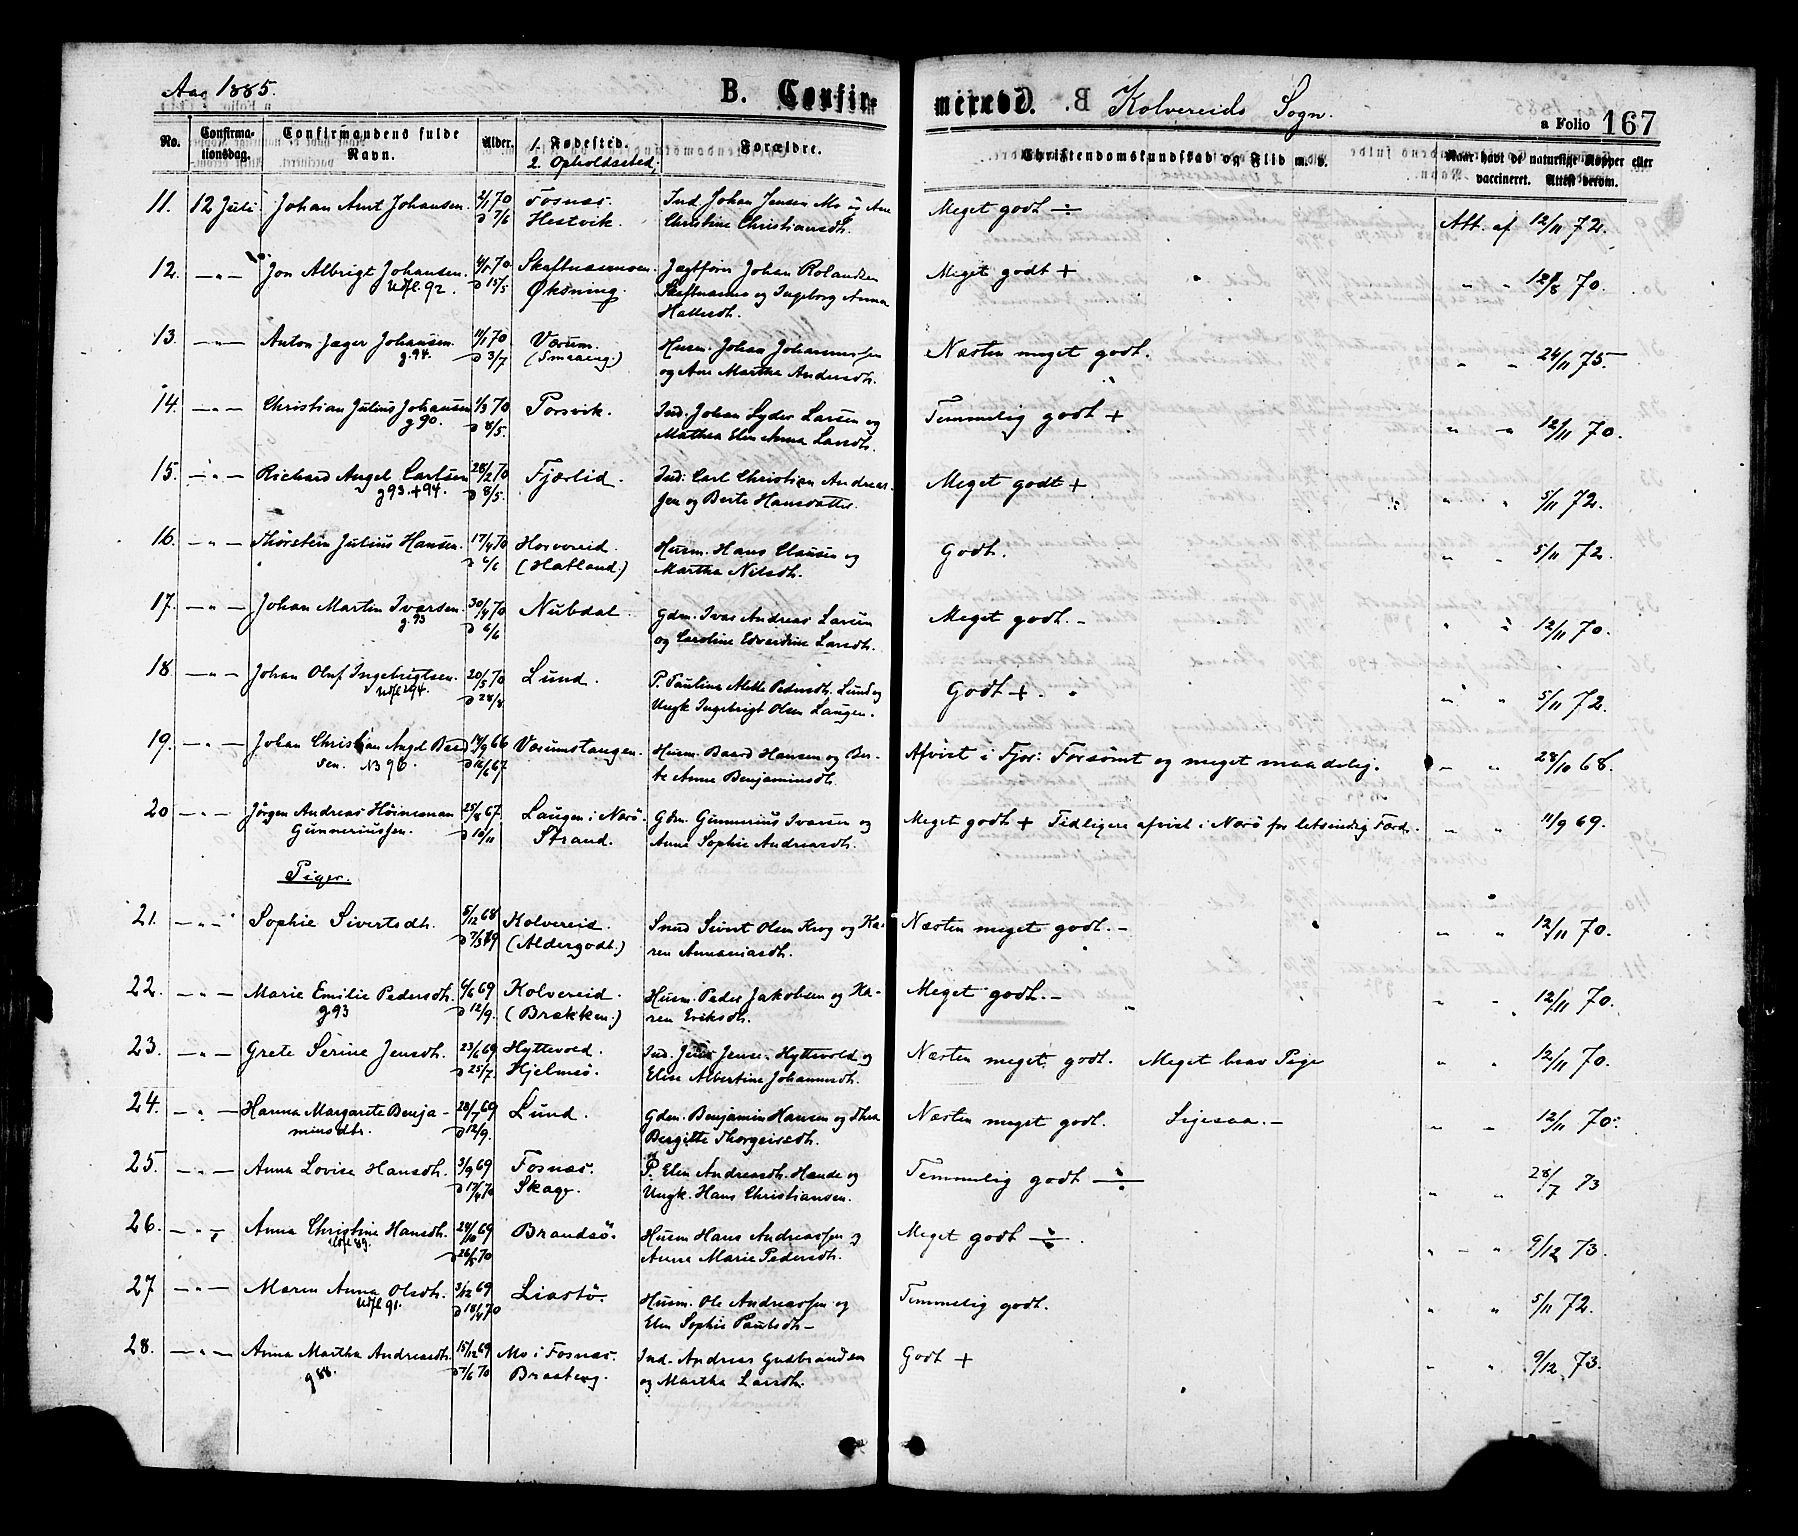 Aar 1885.
B. Confirmerede. Kolvereids Sogn.
a Folio 167
No.
Confirmationsdag.
Confirmandens fulde Navn.
Alder.
1. Fødested.
2. Opholdssted.
Forældre.
Christendomskundskab og Flid m. v.
Naar havt de naturlige Kopper eller vaccineret. Attest derom.
11. 12 Juli Johan Arnt Johansen. 2/1 70 Fosnæs. Ind. Johan Jensen Mo og Ane Meget godt ÷ Att. af 12/11 72.
D 7/6 Hestvik. Christine Christiansdt.
12. — " — Jon Albrigt Johansen. 70 Skaftnæsmoen. Jægtfører Johan Rolandsen Meget godt + " " 12/8 70.
Udfl. 92. D 15/5 Øksning. Skaftnæsmo og Ingeborg Anna
Hallesdt.
13. — " — Anton Jæger Johansen. 70 Værum. Husm. Johan Johannessen Næsten meget godt. " " 24/11 75
g. 94. D 3/7 (Smaaeng.) og Ane Martha Andersdt.
14. — " — Christian Julius Johansen 1/3 70 Porsvik. Ind. Johan Lyder Larsen og Temmelig godt + " " 12/11 70.
g 90. D 8/5. Mathea Elen Anna Larsdt.
15. — " — Richard Angel Carlsen 28/2 70 Fjærlid. Ind. Carl Christian Andreas- Meget godt + " " 5/11 72.
g 93. + 94. D 8/5. sen og Berte Hansdatter.
16. — " — Thorstein Julius Hansen. 17/4 70 Horvereid. Husm. Hans Clausen og Godt. " " 5/11 72.
D 6/6 (Hatland.) Martha Nilsdt.
17. — " — Johan Martin Ivarsen. 30/4 70 Nubdal. Gdm. Ivar Andreas Larsen Meget godt. - " " 12/11 70.
g. 93 D 6/6 og Caroline Edvardine Larsdt.
18. — " — Johan Oluf Ingebrigtsen. 20/5 70 P. Pauline Mette Pedersdt. Lund og Godt +. " " 5/11 72.
Udfl. 94. D 28/8 Lund. Ungk Ingebrigt Olsen Laugen.
19. — " — Johan Christian Angel Baard 14/9 66 Værumstangen. Husm. Baard Hansen og Ber- Afvist i Fjor: Forsømt og meget maadelig. — " 28/10 68.
sen. N3 96. D 16/6 67. te Anne Benjaminsdt.
20 — " — Jörgen Andreas Høineman 25/8 67. Laugen i Nærö. Gdm. Gunnerius Ivarsen og Meget godt + Tidligere afvist i Nærö for letsindig Færd. " " 11/9 69.
Gunneriussen. D 10/11 Strand. Anne Sophie Andreasdt.
Piger.
21. — " — Sophie Sivertsdt. 5/12 68 Kolvereid. Sned Sivert Olsen Krog og Ka- Næsten meget godt. - " " 12/11 70.
D 7/3 69 (Aldergodt.) ren Annaniasdt.
22. — " — Marie Emilie Pedersdt. 6/6 69 Kolvereid. Husm. Peder Jakobsen og Ka- Meget godt. - " " 12/11 70.
g 93 D 12/9. (Brækken.) ren Eriksdt.
23. — " — Grete Serine Jensdt. 23/6 69 Hyttevold. Ind. Jens Jense. Hyttevold og Næsten meget godt. Meget brav Pige " " 12/11 70.
D 25/7. Hjelmsö. Elise Albertine Johannesdt.
24. — " — Hanna Margarete Benja- 28/7 69 Lund. Gdm. Benjamin Hansen og Næsten meget godt. Ligesaa. - " " 12/11 70.
minsdtr. D 12/9. Bergitte Thorgeirsdt.
25. — " — Anna Lovise Hansdt. 3/9 69 Fosnæs. P. Elen Andreasdt. Hande og Temmelig godt ÷ " " 28/7 73
D 17/4 70 Skage. Ungk. Hans Christiansen.
26. — " — Anna Christine Hansdt. 24/10 69 Brandsö. Husm Hans Andreassen og Meget godt ÷ " " 9/12 73.
Udfl 89. D 26/5 70 Anne Marie Pedersdt.
27 — " — Maren Anna Olsdt. 3/12 69 Liastö. Husm. Ole Andreassen og Temmelig godt. " " 5/11 72.
Udfl 91. D 18/4 70 Elen Sophie Paulsdt -
28. — " — Anna Martha Andreasdt. 15/12 69 Mo i Fosnæs. Ind. Andreas Gudbrandsen Godt + " " 9/12 73.
g 88. D 7/6 70 Braaberg. og Martha Larsdt.